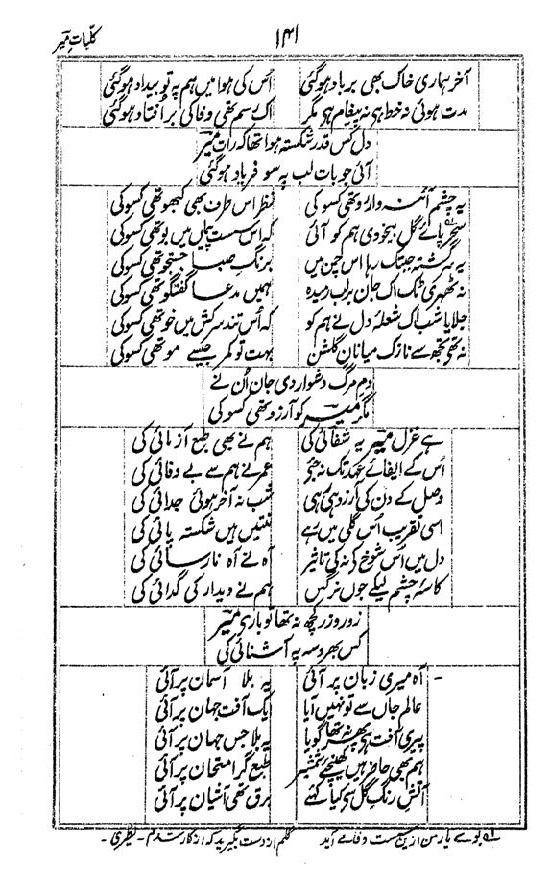 کلیات میر
۱۴۱
آخر ہماری خاک بھی برباد ہوگئی اس کی ہوا میں ہم پہ تو بیداد ہوگئی
مدت ہوئی نہ خط ہے نہ پیغام ہے مگر اک رسم تھی وفا کی بر افتاد ہوگئی
دل کس قدر شکستہ ہوا تھا کہ رات میر
آئی جو بات لب پہ سو فریاد ہوگئی
یہ چشم آئنہ دار رو تھی کسو کی نظر اس طرف بھی کبھو تھی کسو کی
سحر پائے گل بیخودی ہم کو آئی کہ اس سست پیماں میں بو تھی کسو کی
یہ سرگشتہ جبتک رہا اس چمن میں برنگ صبا جستجو تھی کسو کی
نہ ٹھہری ٹک اک جان برلب رسیدہ ہمیں مدعا گفتگو تھی کسو کی
جلایا شب اک شعلۂ دل نے ہم کو کہ اس تند سرکش میں خو تھی کسو کی
نہ تھی تجھ سے نازک میانان گلشن بہت تو کمر جیسے مو تھی کسو کی
دم مرگ دشوار دی جان ان نے
مگر میر کو آرزو تھی کسو کی
ہے غزل میر یہ شفائی کی ہم نے بھی طبع آزمائی کی
اس کے ایفائے عہد تک نہ جئے عمر نے ہم سے بے وفائی کی
وصل کے دن کی آرزو ہی رہی شب نہ آخر ہوئی جدائی کی
اسی تقریب اس گلی میں رہے منتیں ہیں شکستہ پائی کی
دل میں اس شوخ کے نہ کی تاثیر آہ نے آہ نارسائی کی
کاسۂ چشم لیکے جوں نرگس ہم نے دیدار کی گدائی کی
زور و زر کچھ نہ تھا تو بارے میر
کس بھروسے پہ آشنائی کی
آہ میری زبان پر آئی یہ بلا آسمان پر آئی
عالم جاں سے تو نہیں آیا ایک آفت جہان پر آئی
پیری آفت ہے پھر نہ تھا گویا یہ بلا جس جوان پر آئی
ہم بھی حاضر ہیں کھینچے شمشیر طبع گر امتحان پر آئی
آتش رنگ گل سے کیا کہئے برق تھی آشیان پر آئی
لہ بوئے یار من ازین سست وفا می آید گلم از دست بگیرید کہ از کار شدم ۔ نظیری ۔